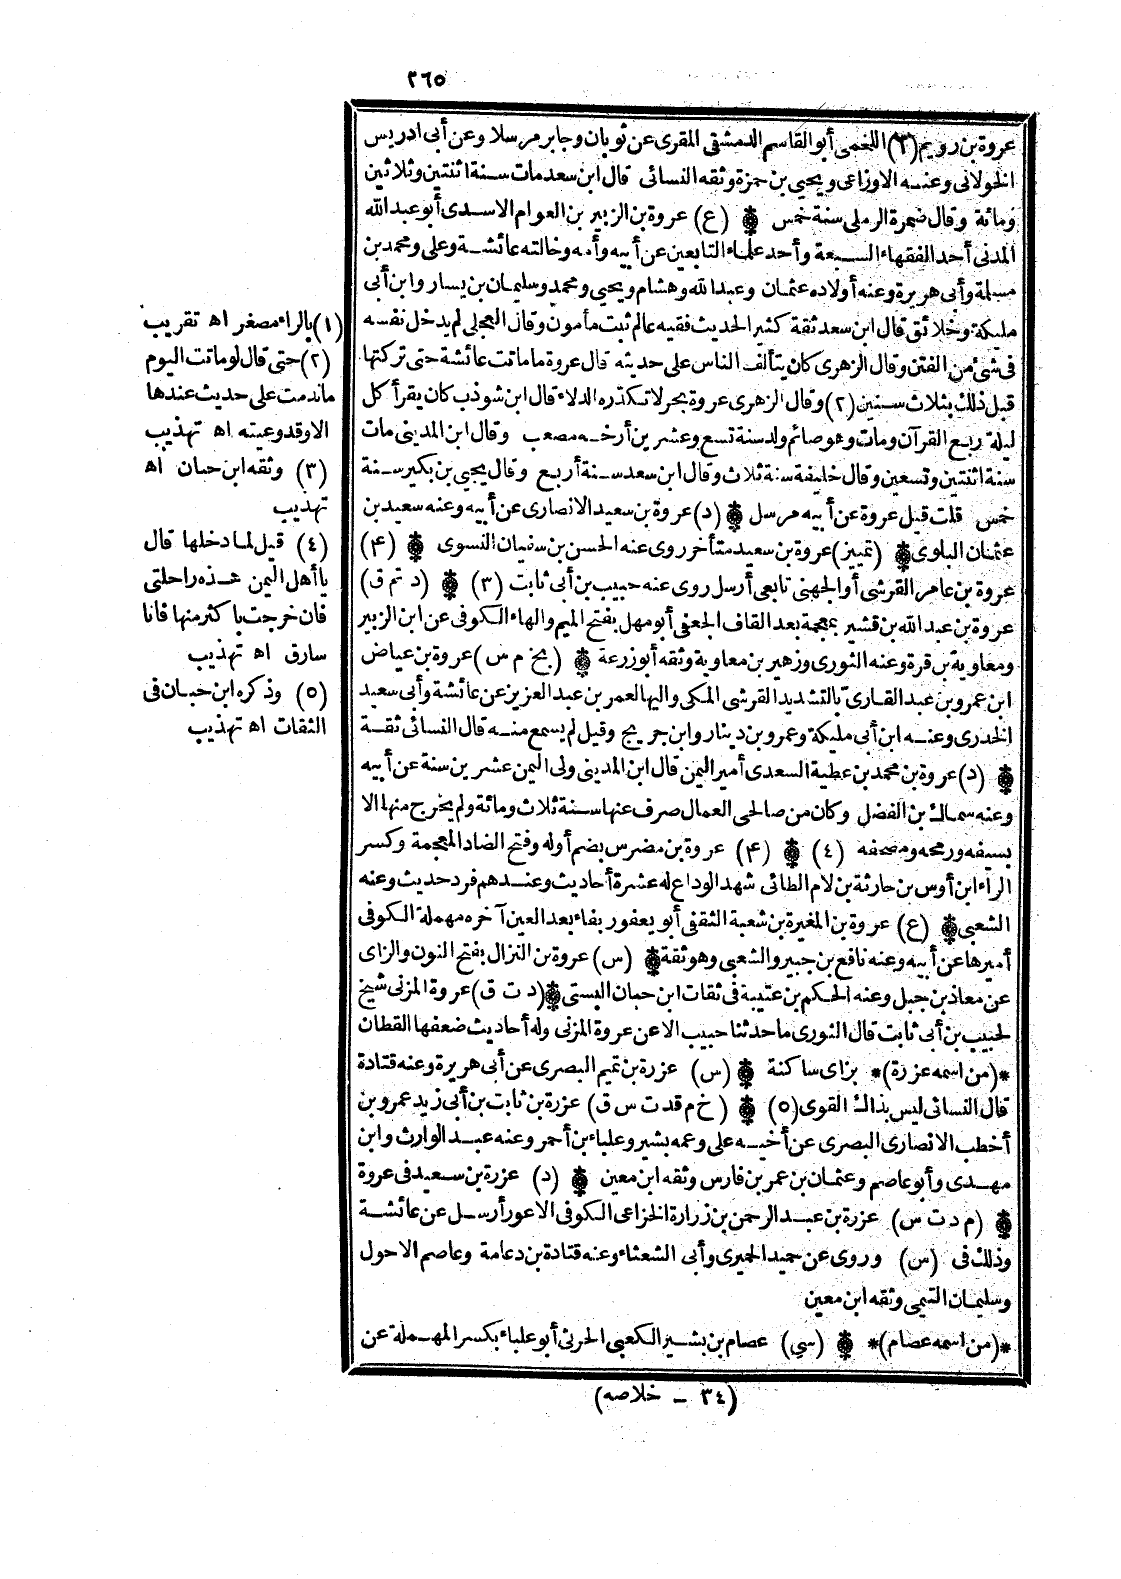 ٢٦٥
عروة بن رويم (٣) اللخمى أبو القاسم الدمشقى المقرى عن ثوبان وجابر مرسلا وعن أبى ادريس
الخولانى وعنه الاوزاعى ويحيى بن حمزة وثقه النسائى قال ابن سعد مات سنة اثنتين وثلاثين
ومائة وقال ضمرة الرملى سنة خمس (ع) عروة بن الزبير بن العوام الاسدى أبو عبد الله
المدنى أحد الفقهاء السبعة وأحد علماء التابعين عن أبيه وأمه وخالته عائشة وعلى ومحمد بن
مسلمة وأبى هريرة وعنه أولاده عثمان وعبد الله وهشام ويحيى ومحمد وسليمان بن يسار وابن أبى
مليكة وخلائق قال ابن سعد ثقة كثير الحديث فقيه عالم ثبت مأمون وقال العجلى لم يدخل نفسه
فى شئ من الفتن وقال الزهرى كان يتألف الناس على حديثه قال عروة ما ماتت عائشة حتى تركتها
قبل ذلك بثلاث سنين (٢) وقال الزهرى عروة بحر لا تكدره الدلاء قال ابن شوذب كان يقرأ كل
ليلة ربع القرآن ومات وهو صائم ولد سنة تسع وعشرين أرخه مصعب وقال ابن المدينى مات
سنة اثنتين وتسعين وقال خليفة سنة ثلاث وقال ابن سعد سنة أربع وقال يحيى بن بكير سنة
خمس قلت قيل عروة عن أبيه مرسل (د) عروة بن سعيد الانصارى عن أبيه وعنه سعيد بن
عثمان البلوى (تمييز) عروة بن سعيد متأخر روى عنه الحسن بن سفيان النسوى (۴)
عروة بن عامر القرشى أو الجهنى تابعى أرسل روى عنه حبيب بن أبى ثابت (٣) (د تم ق)
عروة بن عبد الله بن قشير بمعجمة بعد القاف الجعفى أبو مهل بفتح الميم والهاء الكوفى عن ابن الزبير
ومعاوية بن قرة وعنه الثورى وزهير بن معاوية وثقه أبو زرعة (بخ م س) عروة بن عياض
ابن عمرو بن عبد القارى بالتشديد القرشى المكى واليها لعمر بن عبد العزيز عن عائشة وأبى سعيد
الخدرى وعنه ابن أبى مليكة وعمرو بن دينار وابن جريج وقيل لم يسمع منه قال النسائى ثقة
(د) عروة بن محمد بن عطية السعدى أمير اليمن قال ابن المدينى ولى اليمن عشرين سنة عن أبيه
وعنه سماك بن الفضل وكان من صالحى العمال صرف عنها سنة ثلاث ومائة ولم يخرج منها الا
بسيفه ورمحه ومصحفه (٤) (۴) عروة بن مضرس بضم أوله وفتح الضاد المعجمة وكسر
الراء ابن أوس بن حارثة بن لام الطائى شهد الوداع له عشرة أحاديث وعندهم فرد حديث وعنه
الشعبى (ع) عروة بن المغيرة بن شعبة الثقفى أبو يعفور بفاء بعد العين آخره مهملة الكوفى
أميرها عن أبيه وعنه نافع بن جبير والشعبى وهو ثقة (س) عروة بن النزال بفتح النون والزاى
عن معاذ بن جبل وعنه الحكم بن عتيبة فى ثقات ابن حبان البستى (د ت ق) عروة المزنى شيخ
لحبيب بن أبى ثابت قال الثورى ما حدثنا حبيب الا عن عروة المزنى وله أحاديث ضعفها القطان
*(من اسمه عزرة)* بزاى ساكنة (س) عزرة بن تميم البصرى عن أبى هريرة وعنه قتادة
قال النسائى ليس بذاك القوى (٥) (خ م قد ت س ق) عزرة بن ثابت بن أبى زيد عمرو بن
أخطب الانصارى البصرى عن أخيه على وعمه بشير وعلباء بن أحمر وعنه عبد الوارث وابن
مهدى وأبو عاصم وعثمان بن عمر بن فارس وثقه ابن معين (د) عزرة بن سعيد فى عروة
(م د ت س) عزرة بن عبد الرحمن بن زرارة الخزاعى الكوفى الاعور أرسل عن عائشة
وذلك فى (س) وروى عن حميد الحميرى وأبى الشعثاء وعنه قتادة بن دعامة وعاصم الاحول
وسليمان التيمى وثقه ابن معين
*(من اسمه عصام)* (سي) عصام بن بشير الكعبى الحرثى أبو علباء بكسر المهملة عن
(٣٤ - خلاصه)
(١) بالراء مصغر اه تقريب
(٢) حتى قال لو ماتت اليوم
ما ندمت على حديث عندها
الا وقد وعيته اه تهذيب
(٣) وثقه ابن حبان اه
تهذيب
(٤) قيل لما دخلها قال
يا أهل اليمن هذه راحلتى
فان خرجت باكثر منها فانا
سارق اه تهذيب
(٥) وذكره ابن حبان فى
الثقات اه تهذيب